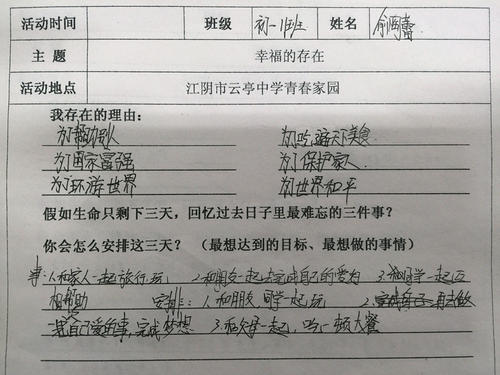 活动时间 班级 初一1班 姓名 俞
主题 幸福的存在
活动地点 江阴市云亭中学青春家园
我存在的理由：
为了帮助别人 为了吃遍天下美食
为了国家富强 为了保护家人
为了环游世界 为了世界和平
假如生命只剩下三天，回忆过去日子里最难忘的三件事？
你会怎么安排这三天？（最想达到的目标、最想做的事情）
事：1.和家人一起旅行,玩 2.和朋友一起去完成自己的爱好 3.和同学一起互
相帮助 安排：1.和朋友 同学一起玩 2.再去做
一些自己爱的事,完成梦想 3.和父母一起,吃一顿大餐